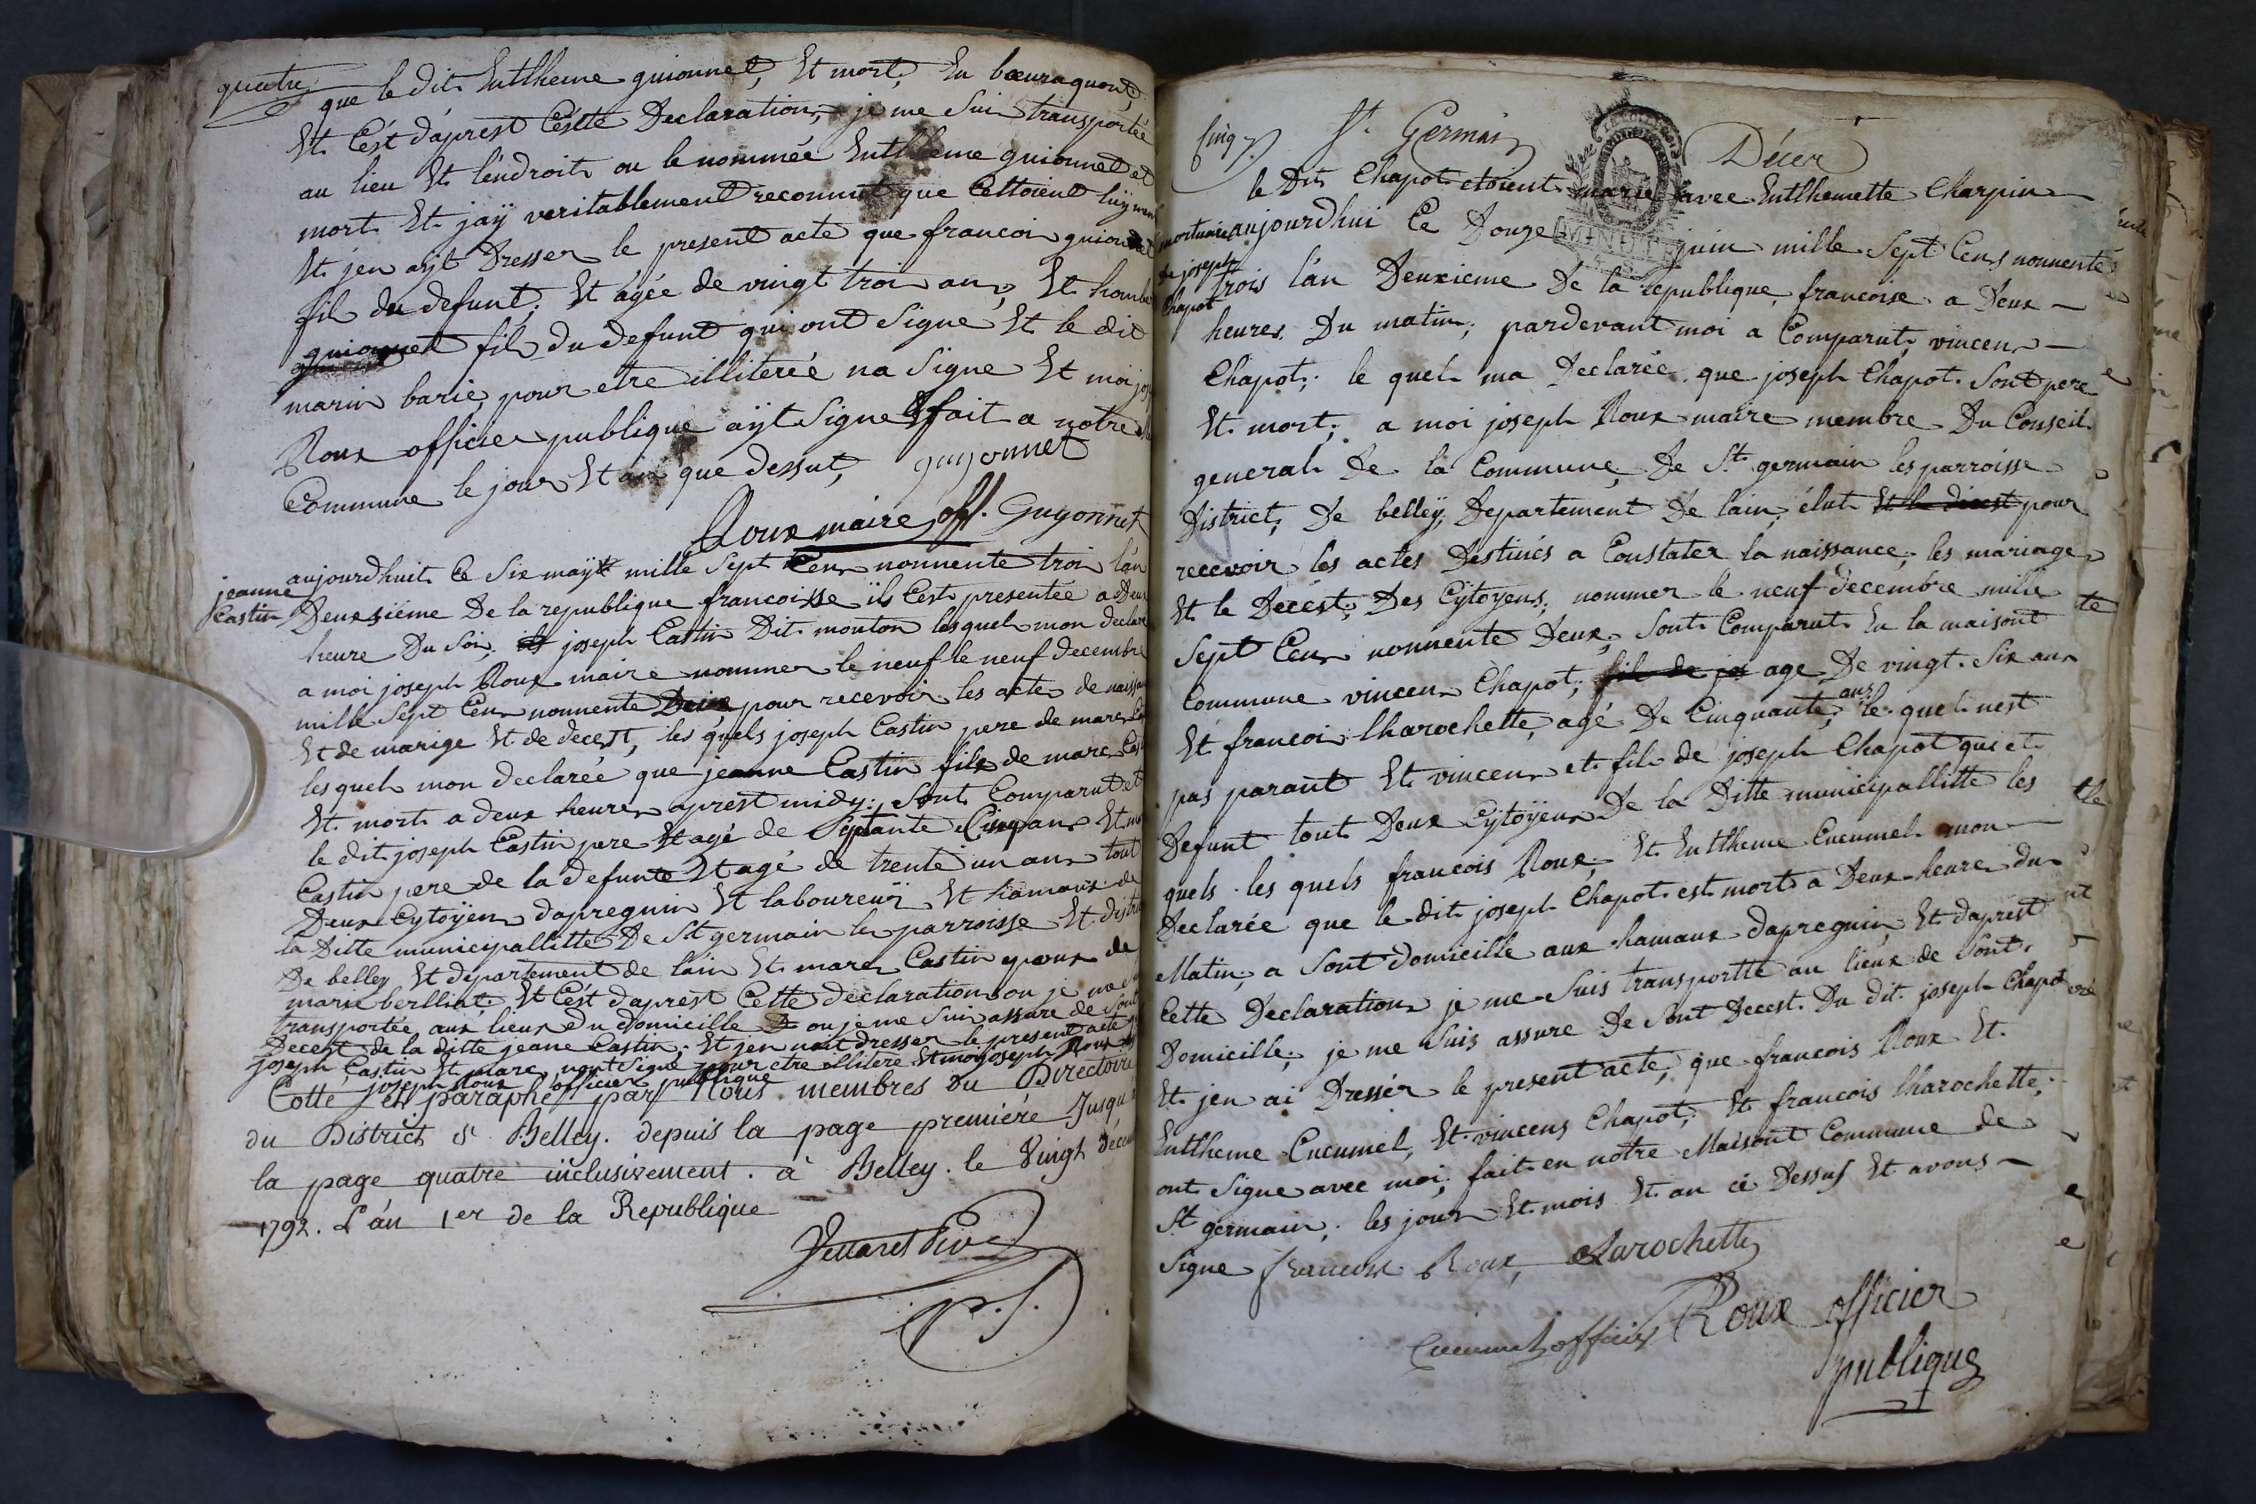 quatre
que le dit Enthheme guionnet, Et mort, En bœuraquont,
Et C'ést d'áprest Céstte Declaration, je me Sui transportée
au lieu Et léndroit ou le nommée Enthheme guionnet et
mort Et jaÿ veritablement reconnut que Cettoient luÿ mem
Et jen aÿt Dresser le present acte que francoi guionnet
fil du defunt, Et ágée de vingt troi an, Et homb
guionnet fil du defunt qui ont Signe, Et le dit
marin barie, pour etre illiterée na Signe Et moi jos
Roux officier publique aÿt Signe Et fait a notre
Commune le jour Et an que dessut, guyonnet
Roux maire off. Guyonnet
jeanne
Castin
aujourdhuit Ce Six maÿ mille Sept Cen nonnente troi l'an
Deuxsiéme De la republique francoisse il C'est presentée a Deux
heure Du Soi, joseph Castin Dit mouton lesquel mon declaré
a moi joseph Roux maire nommer le neuf le neuf decembre
mille Sept Cen nonnente Deux pour recevoir les actes de naissan
Et de marige Et de decest, les quels joseph Castin pere de marc Cas
lesquel mon declarée que jeanne Castin file de marc Cas
Et mort a deux heure aprest midy; Sont Comparut et
le dit joseph Castin pere Et agé de Septante Cinq an Et m
Castin pere de la defunte Et agé de trente un an tout
Deux Cytoÿen dapregnin Et laboureur Et hamaux de
la Ditte municipallitte De St germain les parroisse Et distri
De belley Et departement de lain Et marc Castin epoux de
marie berlliat, Et C'est daprest Cette declaration ou je me
transportée aux lieux du domicille ou je me Sui assure de Sont
Decest de la ditte jeane Castin, Et jen nait dresser le present acte
joseph Castin Et marc nont Signe pour etre illitere Et moy joseph Roux
joseph Roux officier publique
Cotté et paraphé par Nous membres du Directoire
du District de Belley. depuis la page premiére Jusqu
la page quatre inclusivement. à Belley. le Vingt décem
1792. L'án 1er de la Republique
p. s.
Cinq
St. Germain Décex
le Dit Chapot etoient marie avec Enthhemette Charpin
mortuaire
de joseph
Chapot
aujourdhui Ce Douze juin mille Sept Cens nonnente
trois lán Deuxieme De la republique francoise a Deux
heures Du matin; pardevant moi a Comparut, vincen
Chapot; le quel ma Declarée que joseph Chapot Sont pere
Et mort; a moi joseph Roux maire membre Du Conseil
general de la Commune, De St. germain les parroisse
District, De belleÿ, Departement De lain; élut Et le decest pour
recevoir les actes Destinés a Constater la naissance; les mariage
Et le Decest; Des Cÿtoyens; nommer le neuf decembre mille
Sept Cen nonnente Deux, Sont Comparut En la maisont
Commune vincen Chapot; fil de jos age De vingt Six an
Et francoi lharochette, agé De Cinquante ans, le quel nest
pas parant Et vincen et fil de joseph Chapot qui et
Defunt tout Deux Cytoÿen De la Ditte municipallitte les
quels les quels francois Roux, Et Enthheme Cucumel mon
Declarée que le dit joseph Chapot est mort a Deux heure du
Matin, a Sont domicille aux hamaux dapregnin, Et daprest
Cette Declaration je me Suis transportte au lieux de Sont
Domicille; je me Suis assure De Sont Decest Du dit joseph Chapot
Et jen ai Dresser le present acte, que francois Roux Et
Enthheme Cucumel, Et vincens Chapot; Et francois lharochette;
ont Signe avec moi; fait en notre Maisont Commune de
St germain; les jour Et mois Et an ci Dessus Et avons
Signe francoix Roux, Larochette
Cucumel officier Roux officier
publique